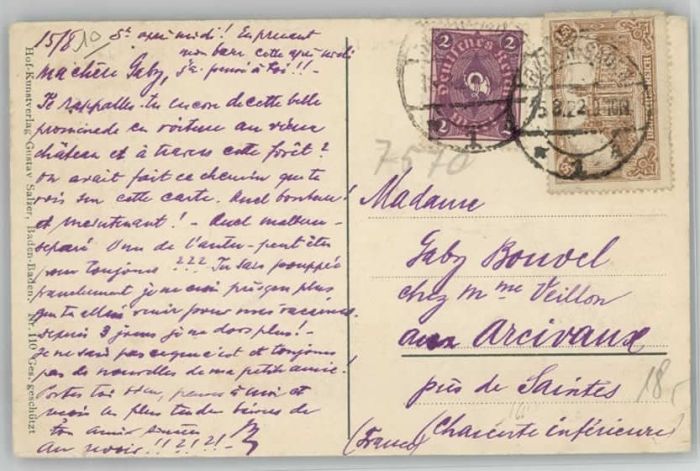 15/8 St après midi! En prenant
mon bain cette après midi
Ma chère Gaby, j'ai pensé à toi!!! -
Te rappelles-tu encore de cette belle
promenade en voiture au vieux
château et à travers cette forêt?
On avait fait ce chemin que tu
vois sur cette carte. Quel bonheur!
et maintenant! - Quel malheur
séparé l'un de l'autre - peut être
pour toujours ??? Tu sais
je ne crois plus
que tu allais venir pour mes vacances.
depuis 3 jours je ne dors plus! -
Je ne sais pas ce que c'est et toujours
pas de nouvelles de ma petite amie!
Portes toi bien, penses à moi et
reçois les plus tendres baisers de
ton ami
Au revoir!!!?!?!-
Hof-Kunstverlag Gustav Salzer, Baden-Baden. Nr. 110 Ges. geschützt
2 2
Deutsches Reich
2 2
15.8.22
7570
Madame
Gaby Bouvel
chez Mme Veillon
aux Arcivaux
près de Saintes
18,
(Charente inférieure)
(France)